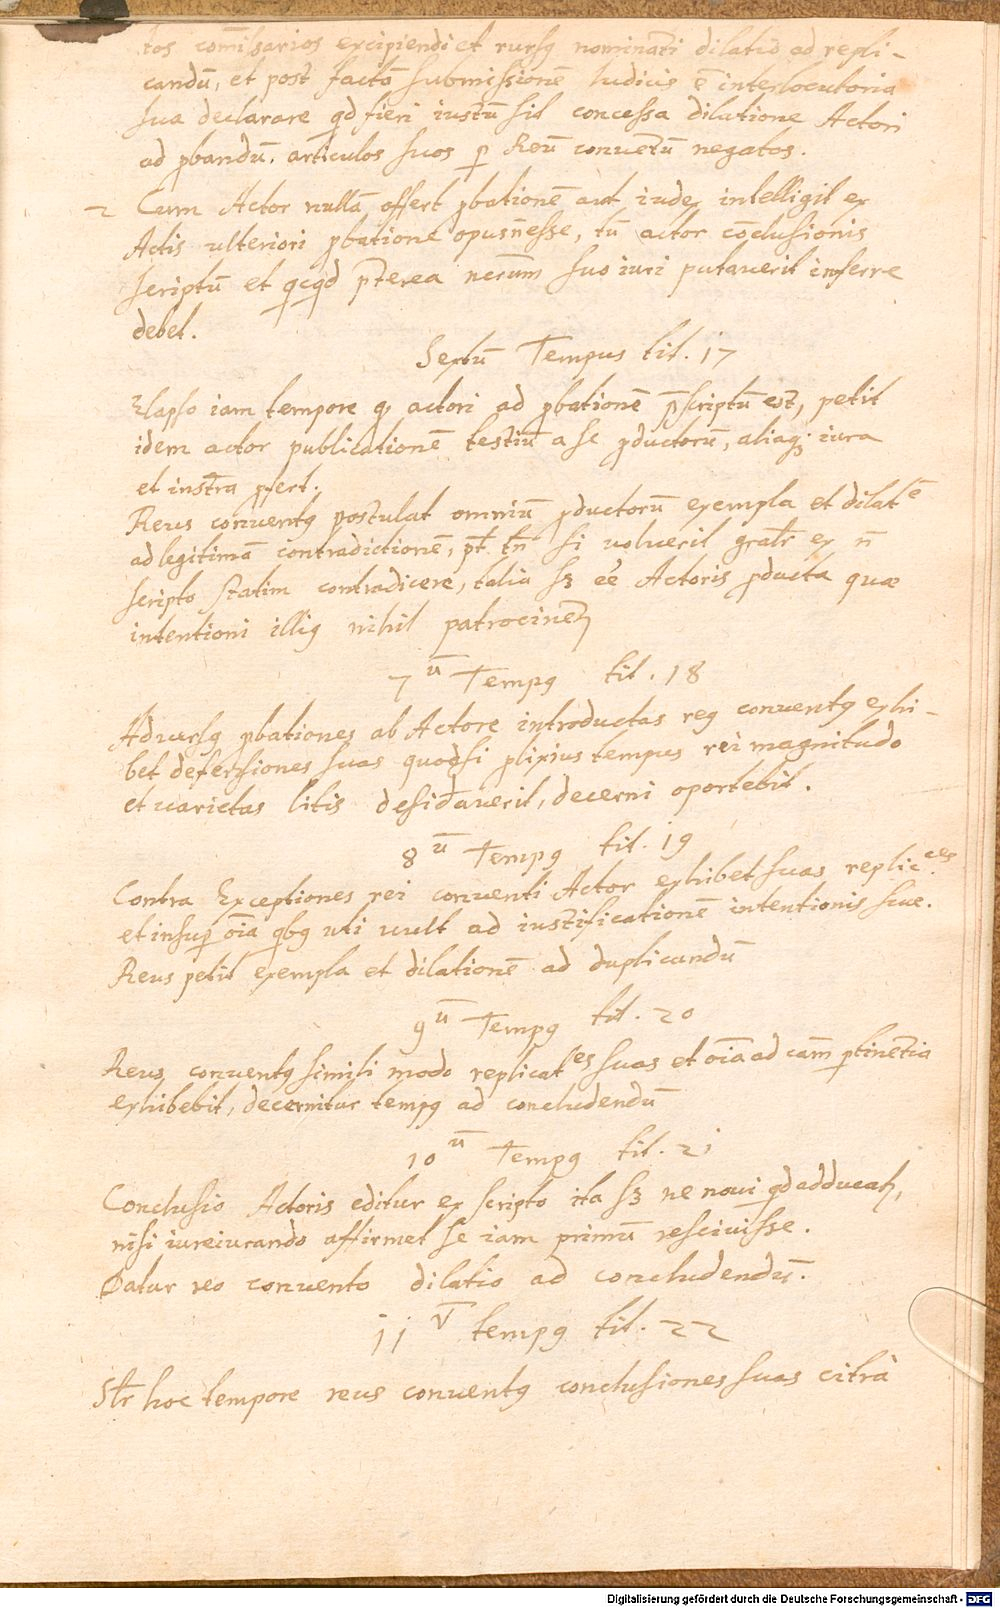 tos comīssarios excipiendi et rursq nominati dilatio ad repli-
candū, et post factā submissionē Iudicis ē interlocutoria
sua declarare qd fieri iustū sit concessa dilatione Actori
ad pbandū, articulos suos p Reū conuetū negatos.
2 Cum Actor nullā offert pbationē aut iudex intelligit ex
Actis ulteriori pbatione opus ñ esse, tū actor cōclusionis
scriptū et qcqd pterea necrūm suo iuri putauerit inferre
debet.
Sextū Tempus tit. 17
Elapso iam tempore q actori ad pbationē pscriptū est, petit
idem actor publicationē testiū a se pductorū, aliaq; iura
et instra pfert.
Reus conventq postulat omniū pductorū exempla et dilatē
ad legitimā contradictionē, pt. tn si voluerit gratr ex ñ
scripto statim contradicere, talia sz eē Actoris pducta quæ
intentioni illiq nihil patrocinet
7ū Tempq tit. 18
Adversq pbationes ab Actore introductas req conventq exhi-
bet defensiones suas quodsi plixius tempus rei magnitudo
et varietas litis desidaverit, decerni oportebit.
8ū Tempq tit. 19
Contra Exceptiones rei conventi Actor exhibet suas replic.ces
et insup oīa qbq uti vult ad iustificationē intentionis suæ.
Reus petit exempla et dilationē ad duplicandū
9ū Tempq tit. 20
Reus conventq simili modo replicates suas et oīa ad eam ptinētia
exhibebit, decernitur tempq ad concludendū
10ū Tempq tit. 21
Conclusio Actoris editur ex scripto ita sz ne novi qd adducat,
nisi iureiurando affirmet se iam primū rescivisse.
Datur reo convento dilatio ad concludendū.
11ū tempq tit. 22
Str hoc tempore reus conventq conclusiones suas citrà
Digitalisierung gefördert durch die Deutsche Forschungsgemeinschaft - DFG